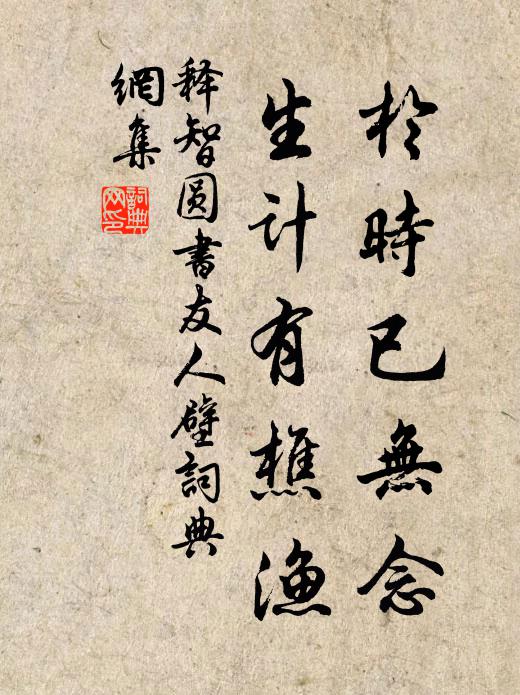 於時已無念
生計有樵漁
释智圆書友人壁詞典
網集
詞典
网印